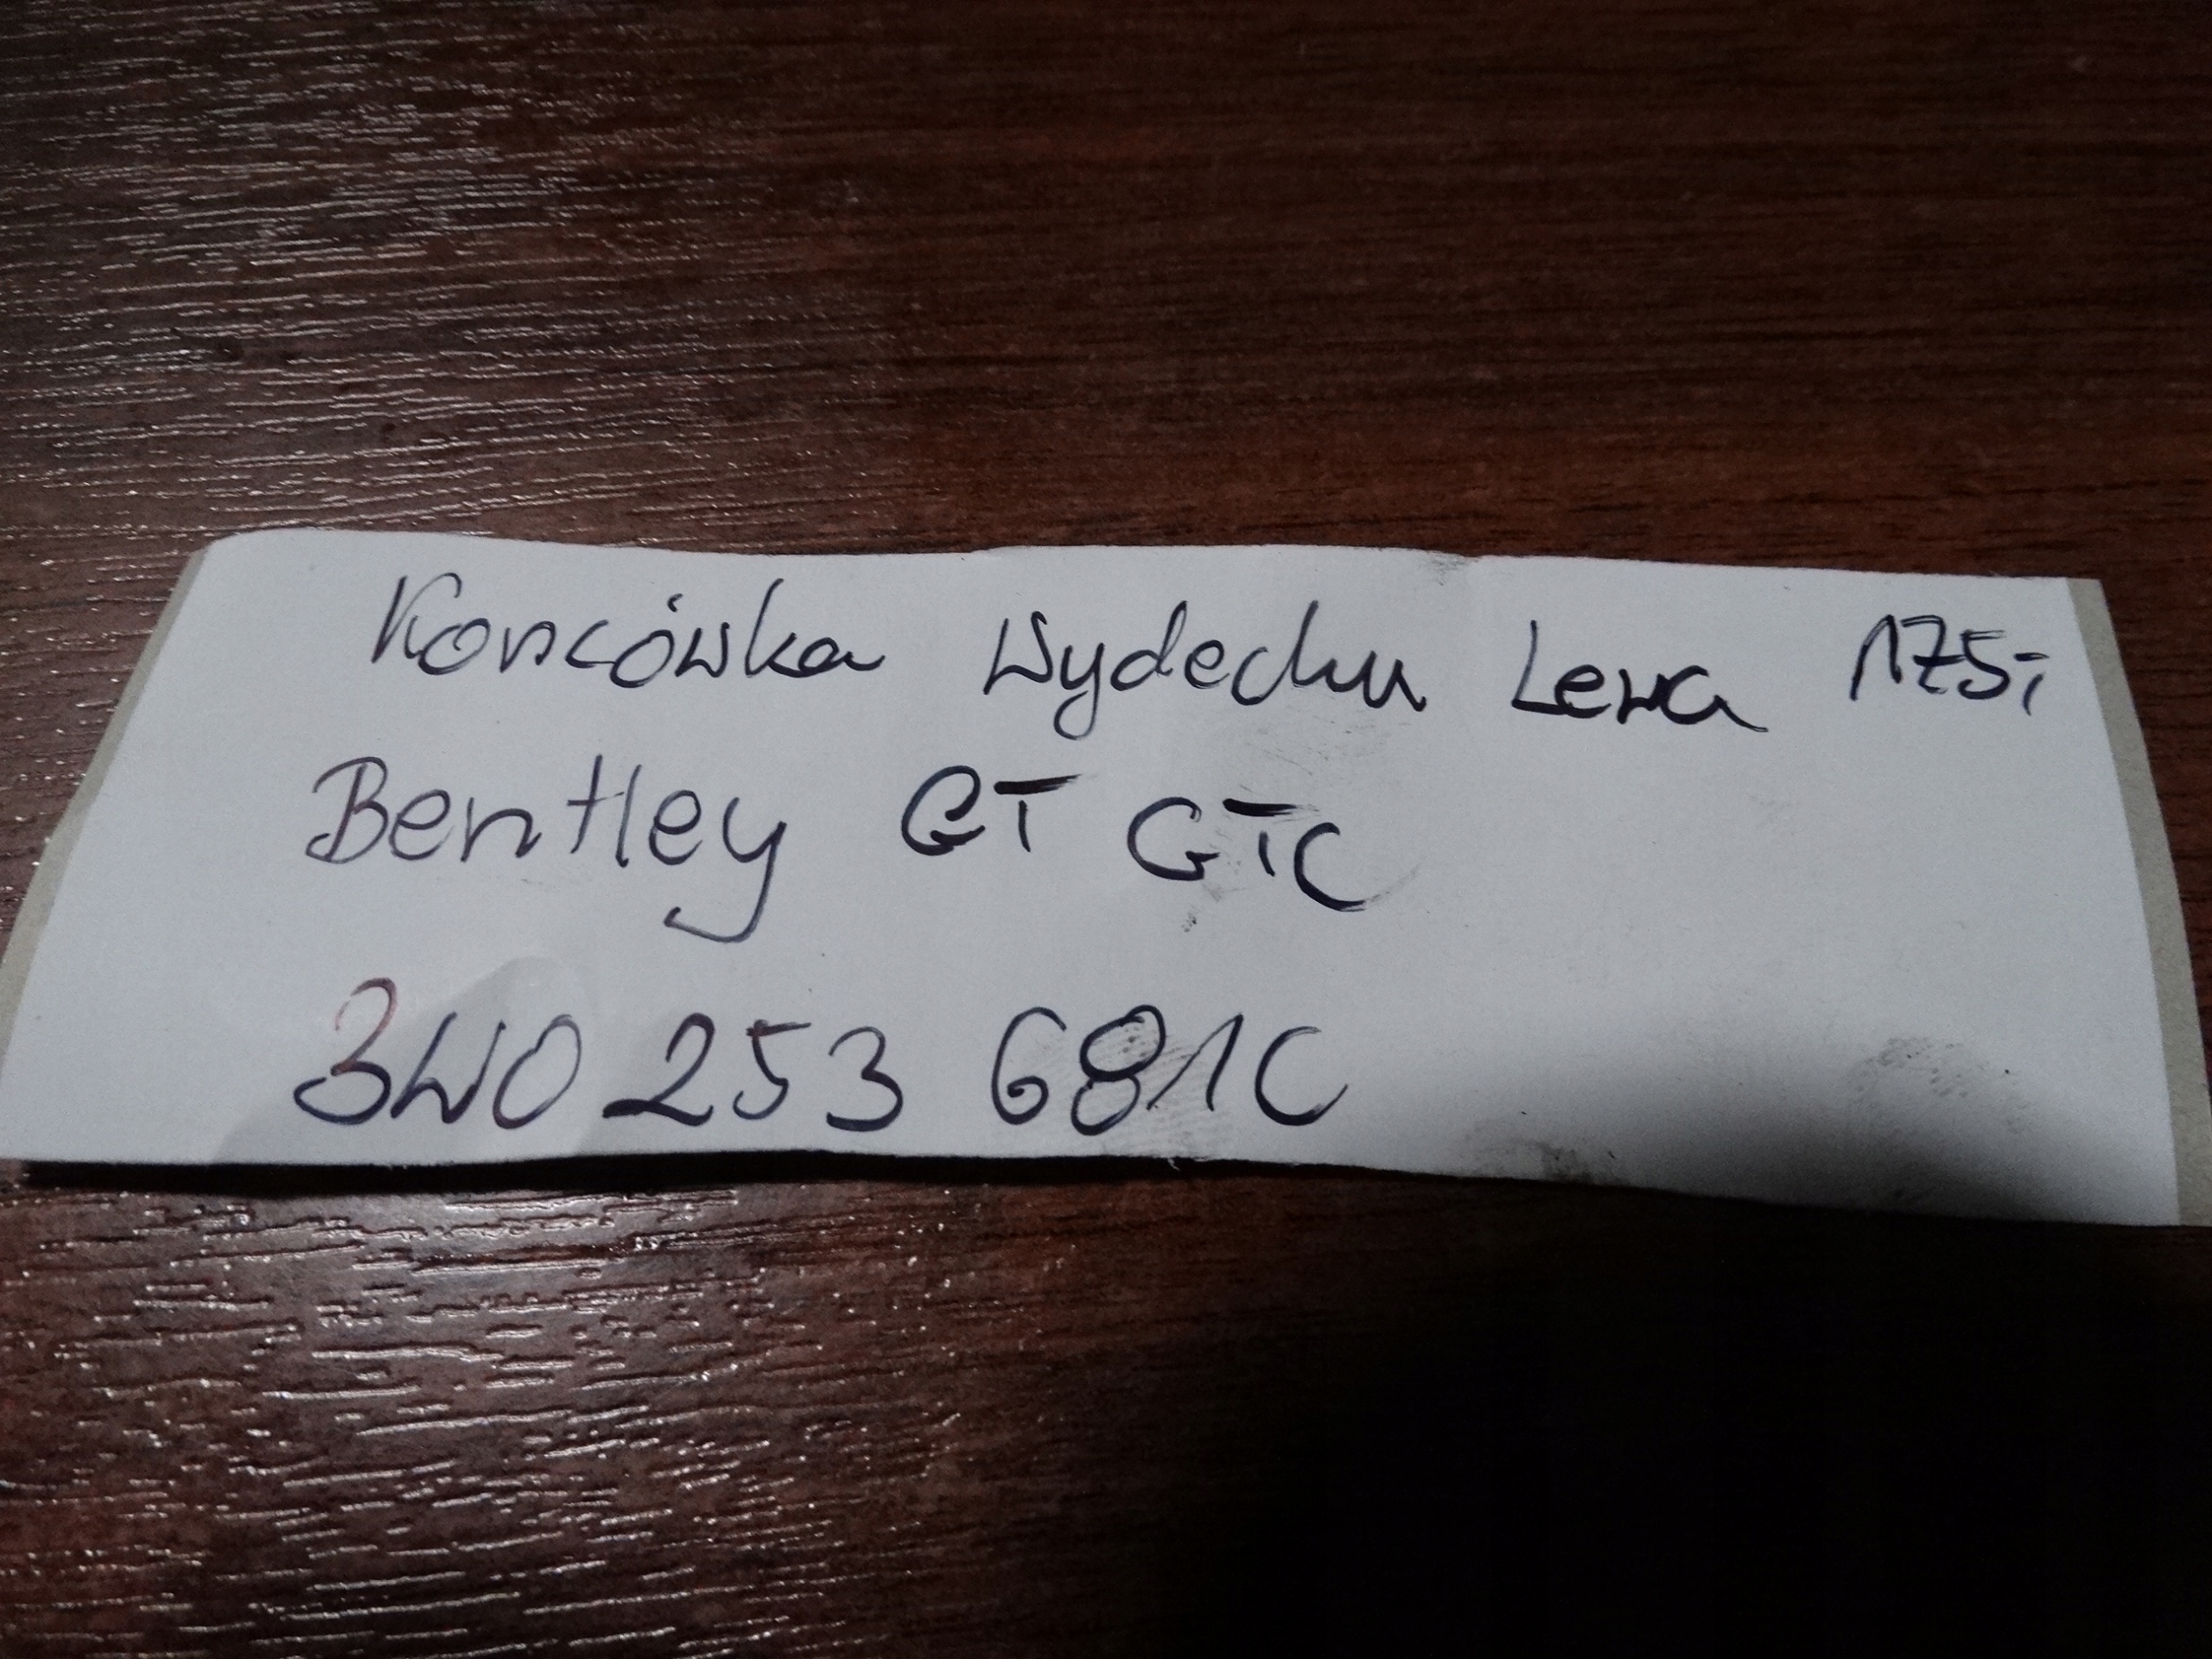 Koncówka Wydechu Lewa 175,-
Bentley GT GTC
3W0 253 681C